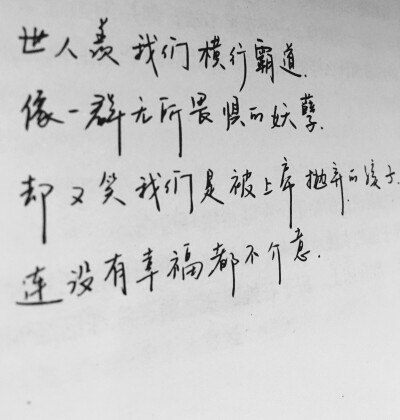 世人羡我们横行霸道.
像一群无所畏惧的妖孽.
却又笑我们是被上帝抛弃的孩子.
连没有幸福都不介意.